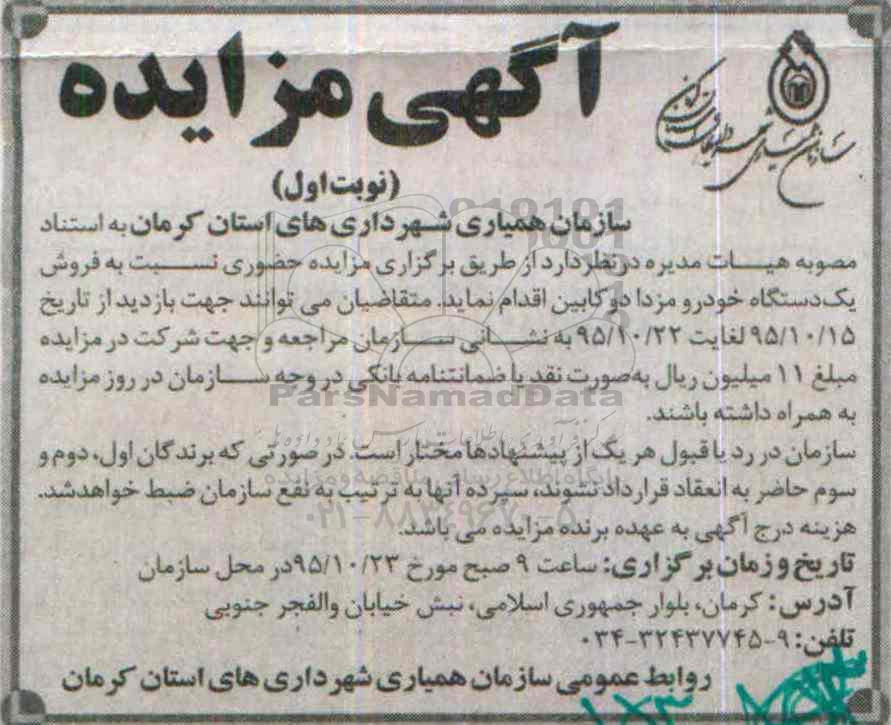 آگهی مزایده
(نوبت اول)
سازمان همیاری شهرداری های استان کرمان به استناد
مصوبه هیات مدیره درنظر دارد از طریق برگزاری مزایده حضوری نسبت به فروش
یک‌دستگاه خودرو مزدا دوکابین اقدام نماید. متقاضیان می توانند جهت بازدید از تاریخ
۹۵/۱۰/۱۵ لغایت ۹۵/۱۰/۲۲ به نشانی سازمان مراجعه و جهت شرکت در مزایده
مبلغ ۱۱ میلیون ریال به‌صورت نقد یا ضمانتنامه بانکی در وجه سازمان در روز مزایده
به همراه داشته باشند.
سازمان در رد یا قبول هر یک از پیشنهادها مختار است. در صورتی که برندگان اول، دوم و
سوم حاضر به انعقاد قرارداد نشوند، سپرده آنها به ترتیب به نفع سازمان ضبط خواهد شد.
هزینه درج آگهی به عهده برنده مزایده می باشد.
تاریخ و زمان برگزاری: ساعت ۹ صبح مورخ ۹۵/۱۰/۲۳ در محل سازمان
آدرس: کرمان، بلوار جمهوری اسلامی، نبش خیابان والفجر جنوبی
تلفن: ۹-۳۲۴۳۷۷۴۵-۰۳۴
روابط عمومی سازمان همیاری شهرداری های استان کرمان
ParsNamadData
پایگاه اطلاع رسانی مناقصه و مزایده
۰۲۱-۸۸۳۴۹۶۷۰-۵